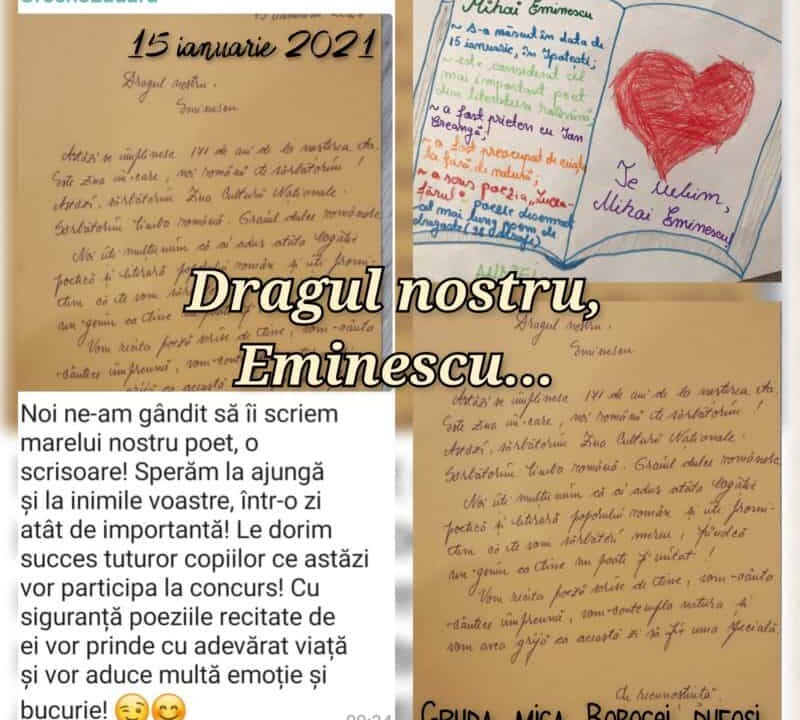 15 ianuarie 2021
Dragul nostru,
Eminescu
Astăzi se împlinesc 171 de ani de la nașterea ta.
Este ziua în care, noi românii te sărbătorim!
Astăzi, sărbătorim Ziua Culturii Naționale.
Sărbătorim limba română. Graiul dulce românesc.
Noi îți mulțumim că ai adus atâta bogăție
poetică și literară poporului român și îți promi-
tem că te vom
un geniu ca tine
Vom recita poezii scrise de tine, vom cânta
cântece împreună, vom
grijă ca această
Mihai Eminescu
~ S-a născut în data de
15 ianuarie, în Ipotești;
~ este considerat cel
mai important poet
din literatura română;
~ a fost prieten cu Ion
Creangă;
~ a fost preocupat de
la fără de natură;
~ a scris poezia „Lucea-
fărul"
cel mai lung poem de
dragoste (98 de strofe)
Te iubim,
Mihai Eminescu!
Dragul nostru,
Eminescu...
Noi ne-am gândit să îi scriem
marelui nostru poet, o
scrisoare! Sperăm la ajungă
și la inimile voastre, într-o zi
atât de importantă! Le dorim
succes tuturor copiilor ce astăzi
vor participa la concurs! Cu
siguranță poeziile recitate de
ei vor prinde cu adevărat viață
și vor aduce multă emoție și
bucurie! 😉😊
Dragul nostru,
Eminescu
Astăzi se împlinesc 171 de ani de la nașterea ta.
Este ziua în care, noi românii te sărbătorim!
Astăzi, sărbătorim Ziua Culturii Naționale.
Sărbătorim limba română. Graiul dulce românesc.
Noi îți mulțumim că ai adus atâta bogăție
poetică și literară poporului român și îți promi-
tem că te vom sărbători mereu, fiindcă
un geniu ca tine nu poate fi uitat!
Vom recita poezii scrise de tine, vom cânta
cântece împreună, vom contempla natura și
vom avea grijă ca această zi să fie una specială.
Cu recunoștință
GRUPA MICA BOBOCEI PUFOȘI